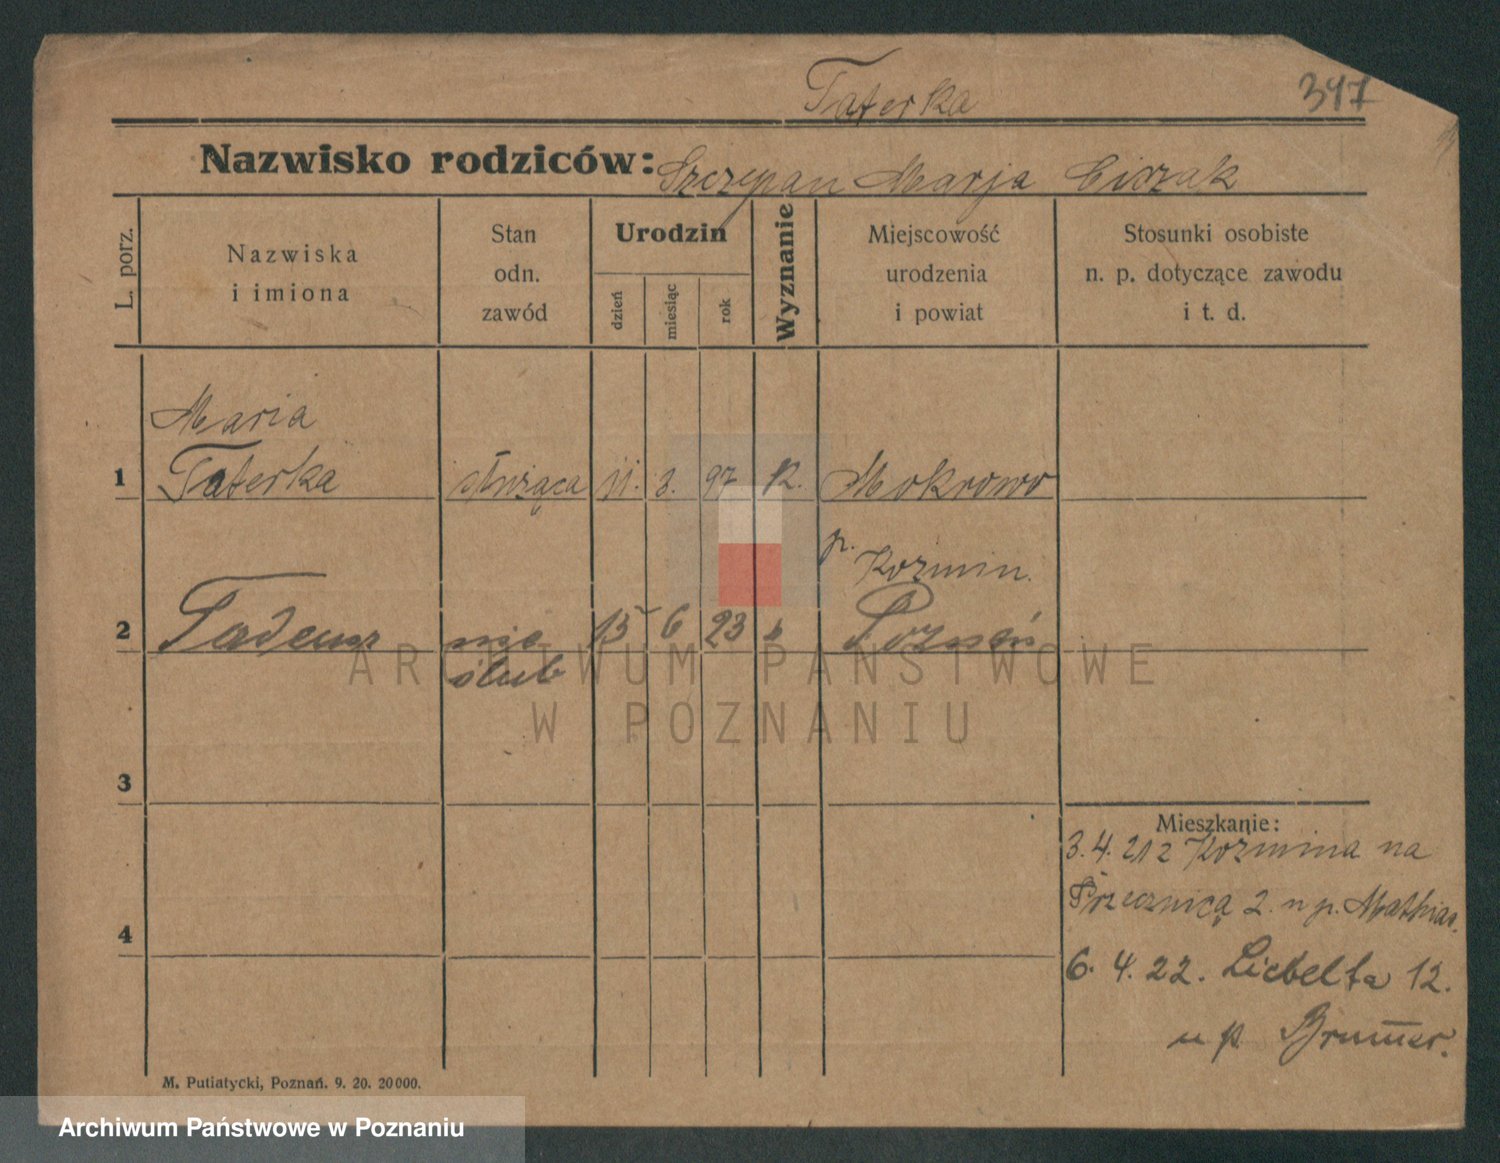 Taterka
397
Nazwisko rodziców: Szczepan Marja Ciszak
L. porz.
Nazwiska
i imiona
Stan
odn.
zawód
Urodzin
dzień
miesiąc
rok
Wyznanie
Miejscowość
urodzenia
i powiat
Stosunki osobiste
n. p. dotyczące zawodu
i t. d.
Maria
1 Taterka służąca 11. 8. 97 R. Mokronos
p. Kozmin.
2 Tadeusz nie 15 6 23 k Poznań
ślub
3
Mieszkanie:
3. 4. 21 z Koźmina na
Przecznicą 2. u p. Mathias.
4
6. 4. 22. Liebelta 12.
u p. Brumer.
M. Putiatycki, Poznań. 9. 20. 20000.
ARCHIWUM PAŃSTWOWE
W POZNANIU
Archiwum Państwowe w Poznaniu